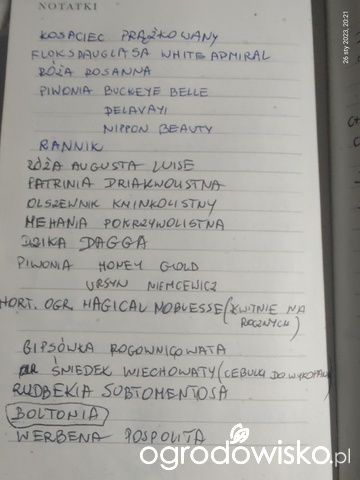 NOTATKI
26 sty 2023, 20:21
KOSACIEC PRĄŻKOWANY
FLOKS DAUGLASA WHITE ADMIRAL
RÓŻA ROSANNA
PIWONIA BUCKEYE BELLE
DELAVAYI
NIPPON BEAUTY
RANNIK
RÓŻA AUGUSTA LUISE
PATRINIA DRIAKWOLISTNA
OLSZEWNIK KMINKOLISTNY
MEHANIA POKRZYWOLISTNA
DZIKA DAGGA
PIWONIA HONEY GOLD
URSYN NIEMCEWICZ
HORT. OGR MAGICAL NOBLESSE (KWITNIE NA
ROCZNYCH)
GIPSÓWKA ROGOWNICOWATA
ŚNIEDEK WIECHOWATY (CEBULKI DO WYKOPANIA
RUDBEKIA SUBTOMENTOSA
BOLTONIA
WERBENA POSPOLITA
ogrodowisko.pl